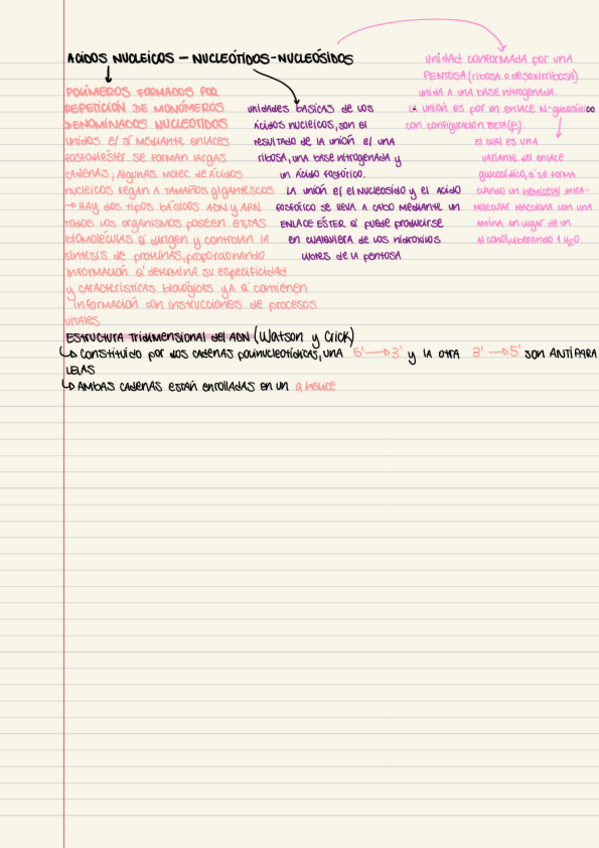 ACIDOS NUCLEICOS — NUCLEÓTIDOS-NUCLEÓSIDOS
POLÍMEROS FORMADOS POR
REPETICIÓN DE MONÓMEROS
DENOMINADOS NUCLEOTIDOS
unidos e/ sí mediante enlaces
fosfodiéster. se forman largas
cadenas, algunas molec. de ácidos
nucleicos llegan a tamaños gigantescos
→ Hay dos tipos básicos ADN y ARN
todos los organismos poseen estas
biomoléculas q' dirigen y controlan la
síntesis de proteínas, proporcionando
información q' determina su especificidad
y características biológicas ya q' contienen
información con instrucciones de procesos
vitales
unidades basicas de los
ácidos nucleicos, son el
resultado de la unión e/ una
ribosa, una base nitrogenada y
un ácido fosfórico.
La unión e/ el nucleosido y el ácido
fosfórico se lleva a cabo mediante un
ENLACE ÉSTER q' puede producirse
en cualquiera de los hidroxilos
libres de la pentosa
unidad conformada por una
PENTOSA (ribosa o desoxirribosa)
unida a una base nitrogenada.
La unión es por un enlace N-glucosídico
con configuración BETA(β).
El cual es una
variante del enlace
glucosídico, q' se forma
cuando un hemiacetal intra-
molecular reacciona con una
amina en lugar de un
alcohol, liberando 1 H2O
ESTRUCTURA Tridimensional del ADN (Watson y Crick)
↳ Constituido por dos cadenas polinucleotídicas, una 5' → 3' y la otra 3' → 5' son ANTIPARA
LELAS
↳ Ambas cadenas están enrolladas en un α hélice